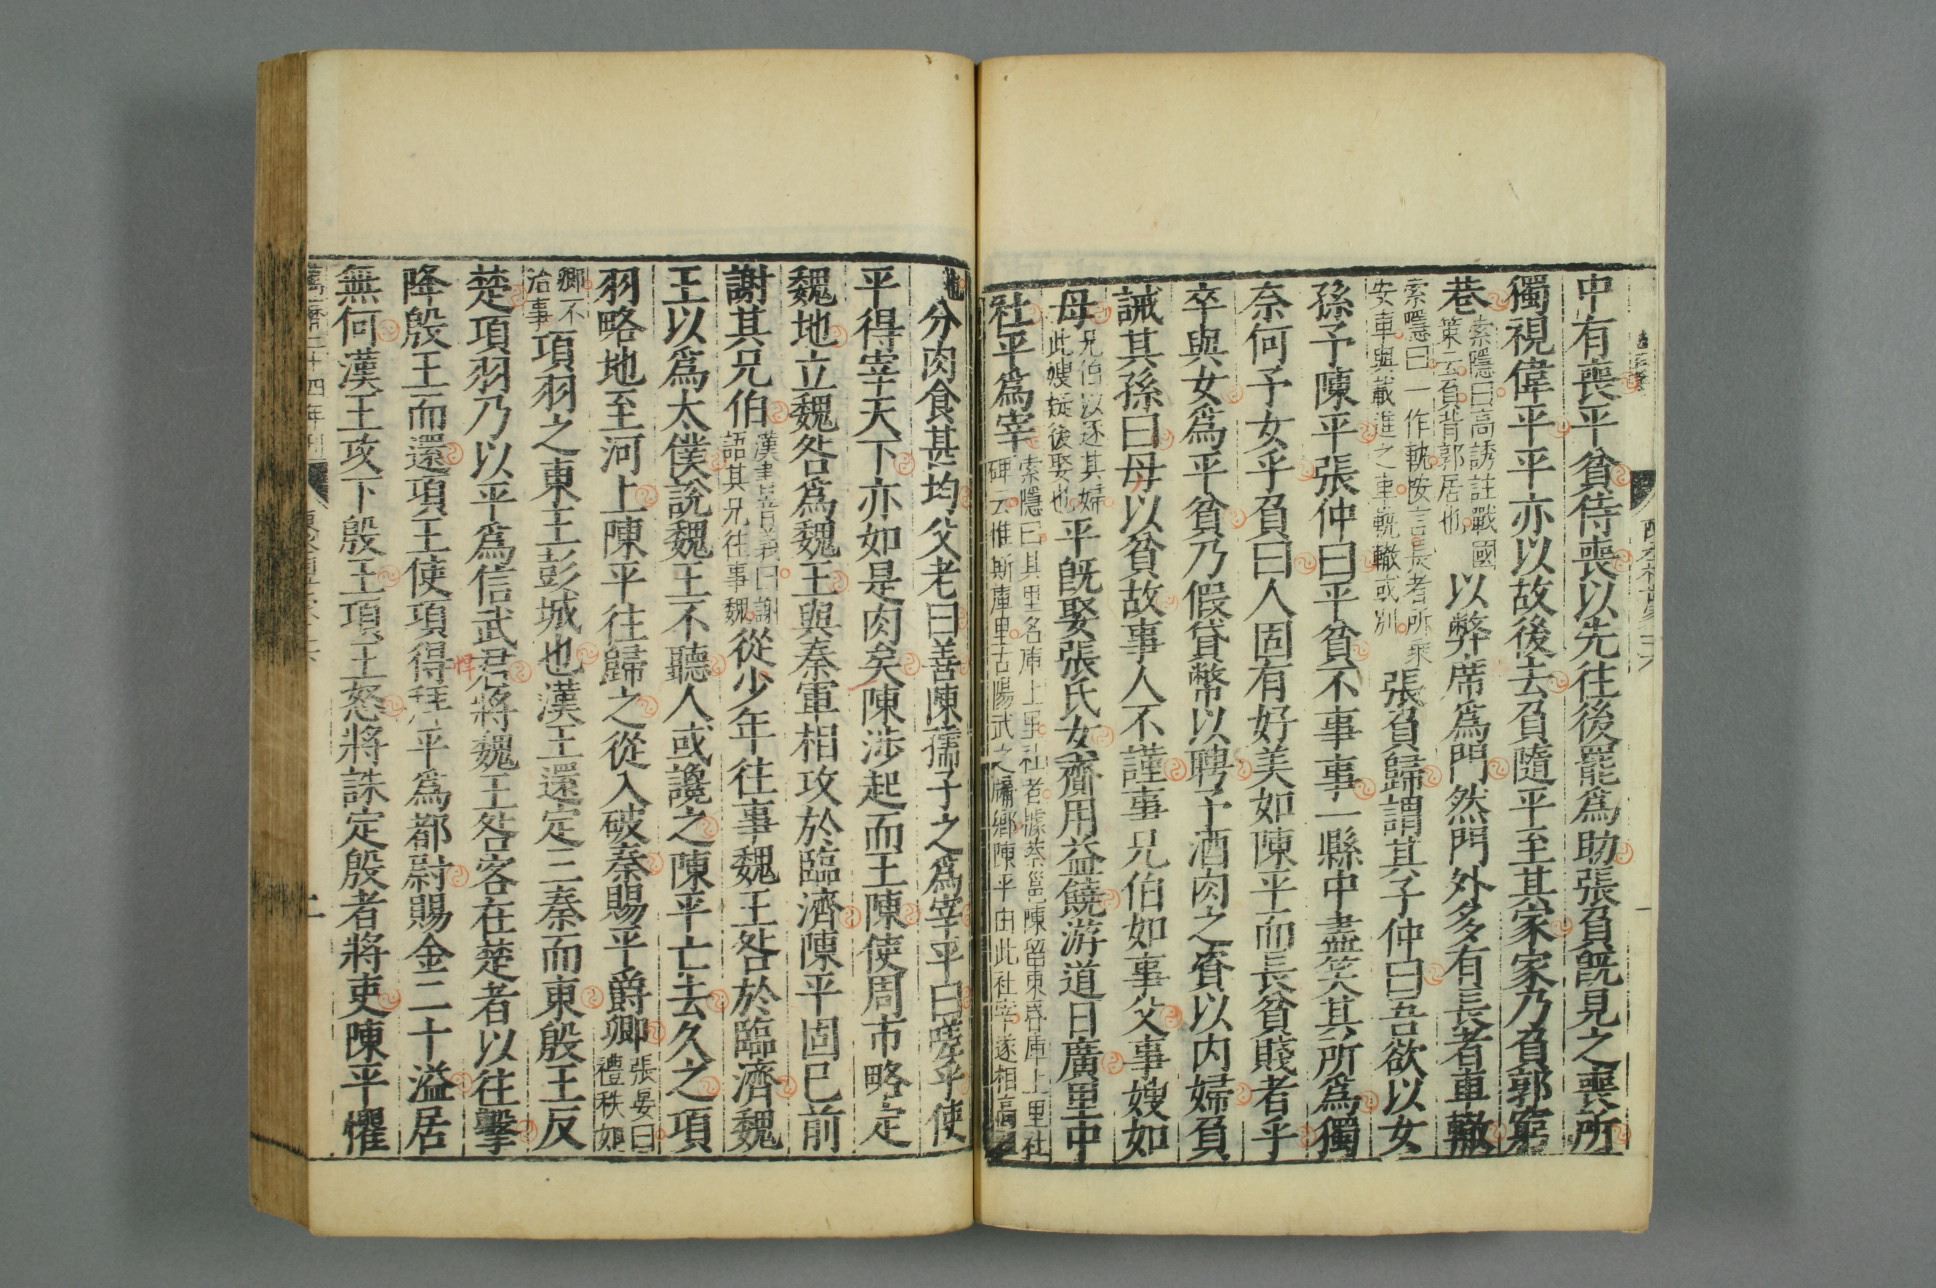 中有喪平貧侍喪以先往後罷爲助張負旣見之喪所
獨視偉平平亦以故後去負隨平至其家家乃負郭窮
巷索隱曰高誘註戰國策云負背郭居也以弊席爲門然門外多有長者車轍
索隱曰一作軌按言長者所乘安車與載進之車軌轍或別張負歸謂其子仲曰吾欲以女
孫予陳平張仲曰平貧不事事一縣中盡笑其所爲獨
奈何予女乎負曰人固有好美如陳平而長貧賤者乎
卒與女爲平貧乃假貸幣以聘予酒肉之資以内婦負
誡其孫曰毋以貧故事人不謹事兄伯如事父事嫂如
母兄伯以逐其婦此嫂疑後娶也平旣娶張氏女齎用益饒游道日廣里中
社平爲宰索隱曰其里名庫上里社者據蔡邕陳留東昏庫上里社碑云惟斯庫里古陽武之牖鄉陳平由此社宰遂相高祖
也分肉食甚均父老曰善陳孺子之爲宰平曰嗟乎使
平得宰天下亦如是肉矣陳涉起而王陳使周市略定
魏地立魏咎爲魏王與秦軍相攻於臨濟陳平固已前
謝其兄伯漢書音義曰謝語其兄往事魏從少年往事魏王咎於臨濟魏
王以爲太僕說魏王不聽人或讒之陳平亡去久之項
羽略地至河上陳平往歸之從入破秦賜平爵卿張晏曰禮秩如
卿不治事項羽之東王彭城也漢王還定三秦而東殷王反
楚項羽乃以平爲信武君將魏王咎客在楚者以往擊
降殷王而還項王使項悍拜平爲都尉賜金二十溢居
無何漢王攻下殷王項王怒將誅定殷者將吏陳平懼
萬曆二十四年刊
二